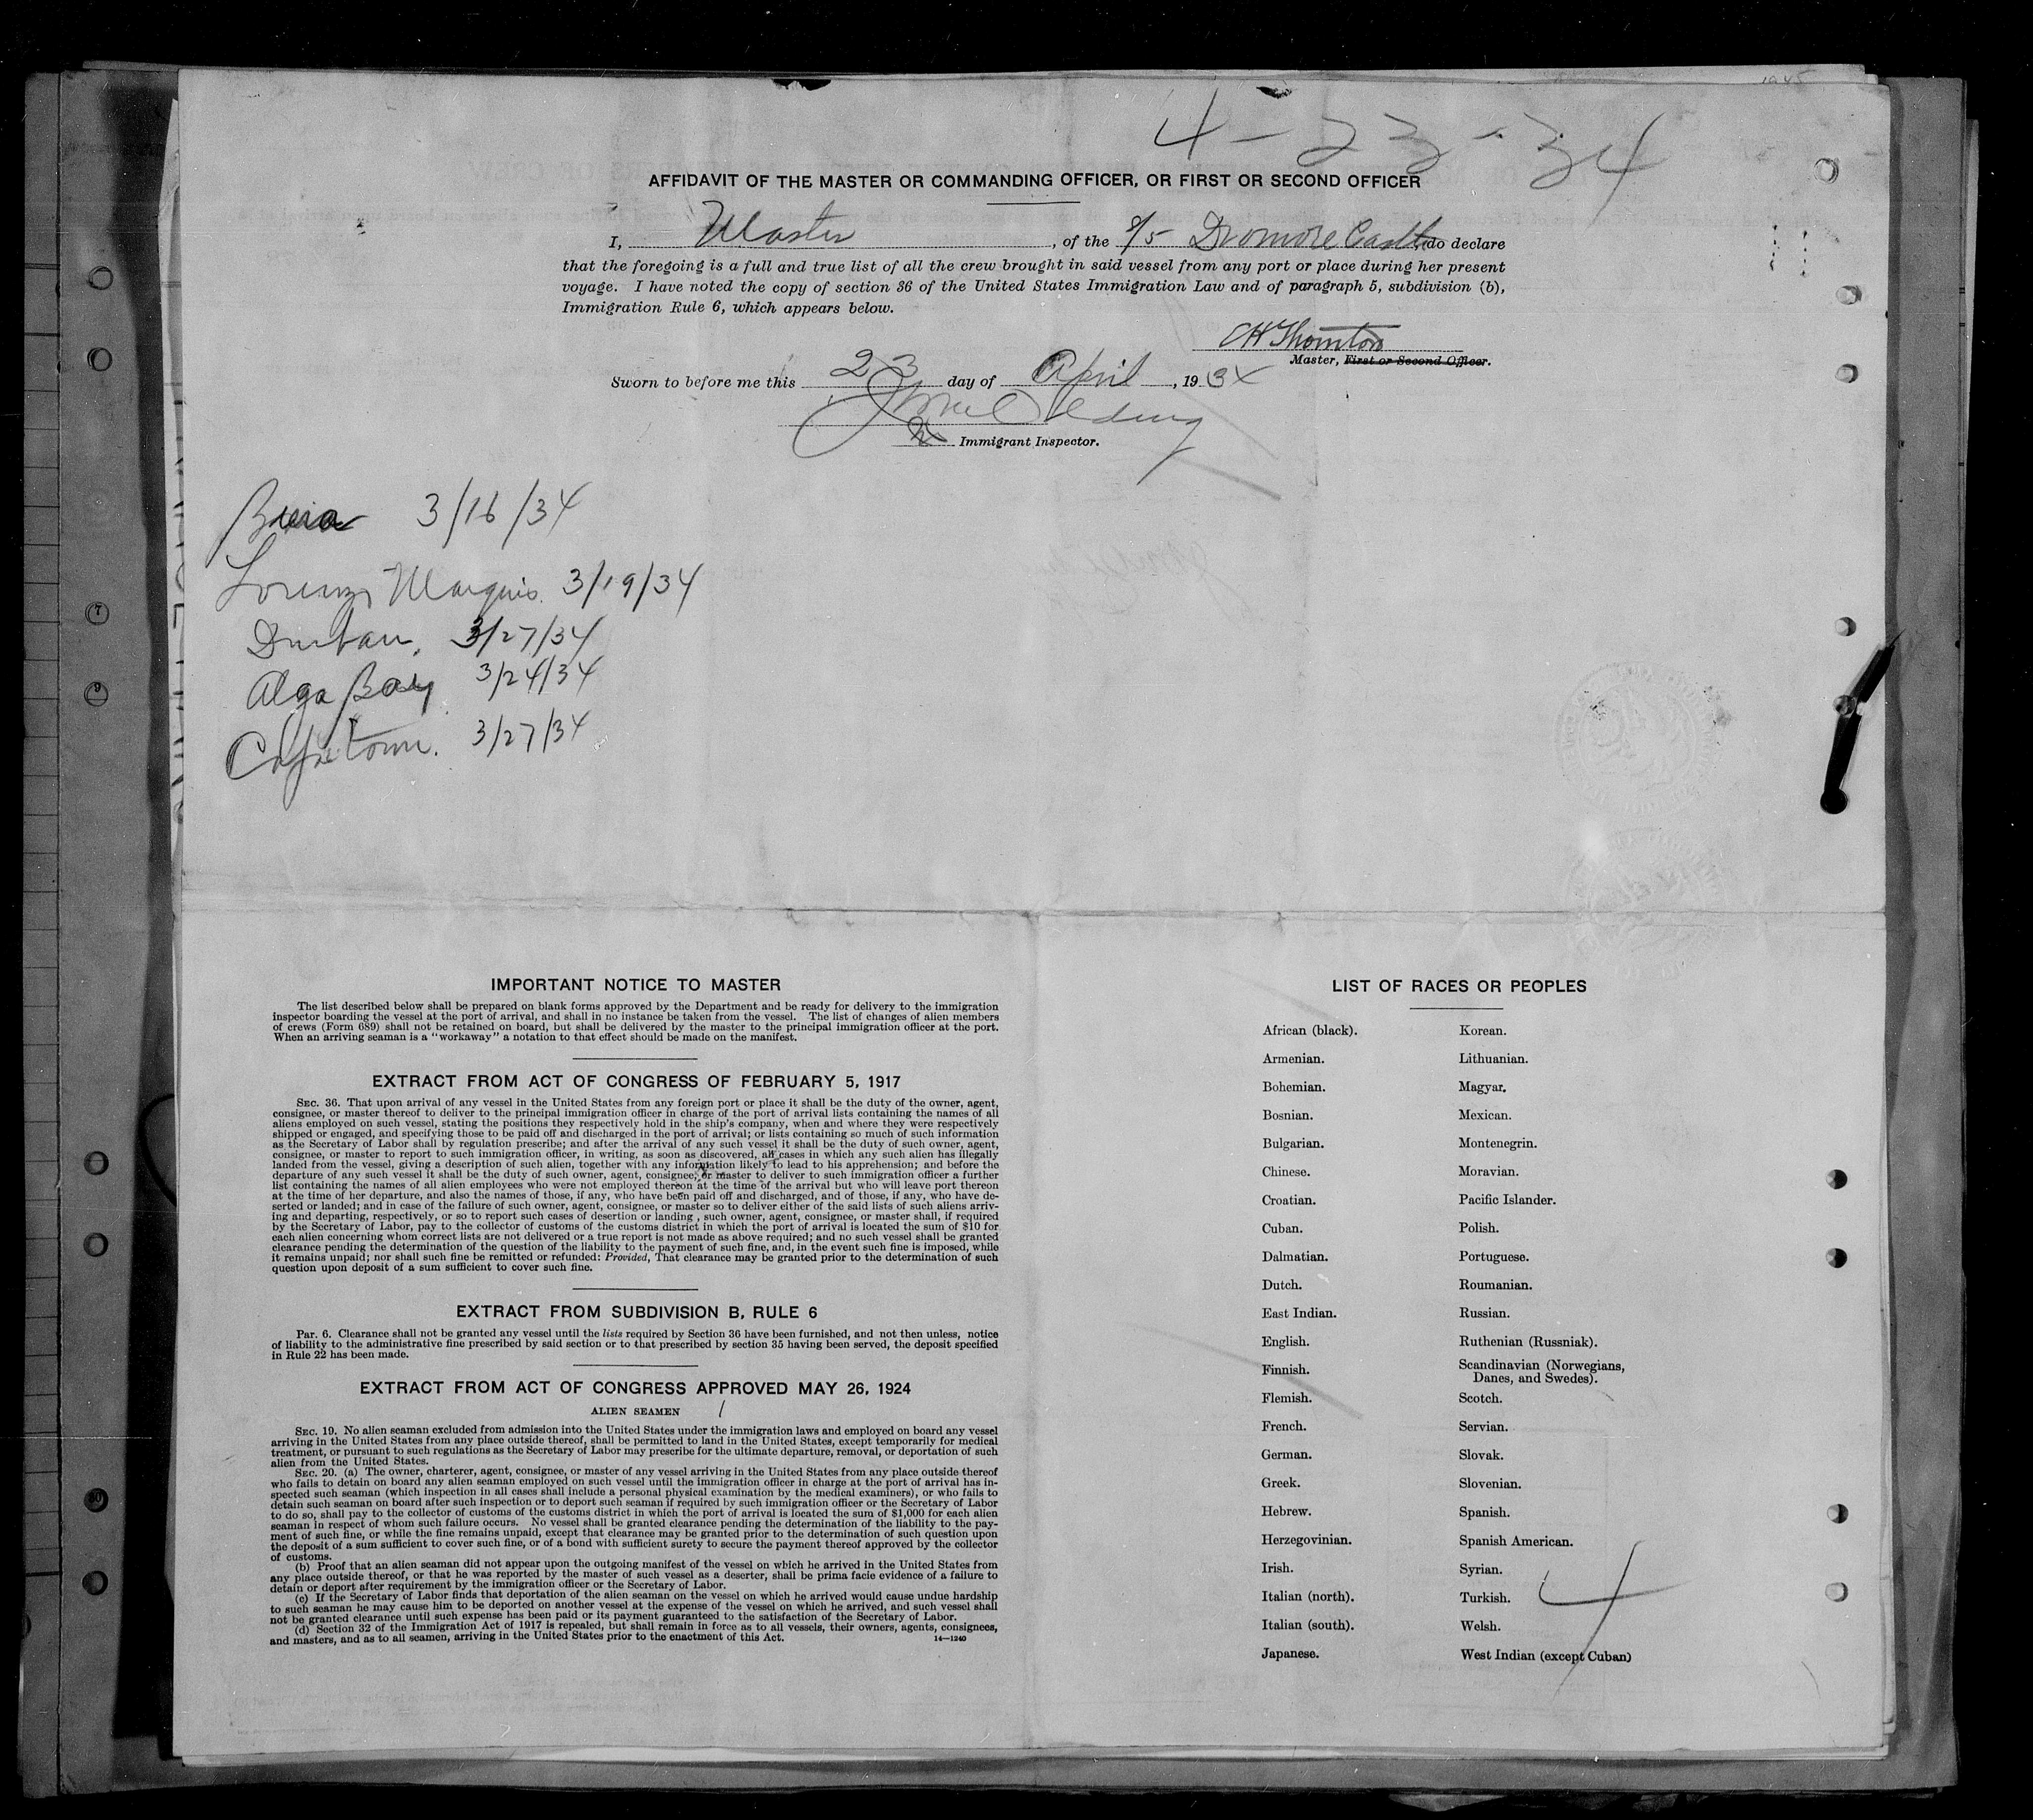 4-23-34
AFFIDAVIT OF THE MASTER OR COMMANDING OFFICER, OR FIRST OR SECOND OFFICER
I, Master, of the S/S Dromore Castle, do declare
that the foregoing is a full and true list of all the crew brought in said vessel from any port or place during her present
voyage. I have noted the copy of section 36 of the United States Immigration Law and of paragraph 5, subdivision (b),
Immigration Rule 6, which appears below.
EH Thornton
Master, First or Second Officer.
Sworn to before me this 23 day of April, 1934
Immigrant Inspector.
Beira 3/16/34
Lorenzo Marquis. 3/19/34
Durban, 3/27/34
Alga Bay 3/24/34
Capetown. 3/27/34
IMPORTANT NOTICE TO MASTER
The list described below shall be prepared on blank forms approved by the Department and be ready for delivery to the immigration
inspector boarding the vessel at the port of arrival, and shall in no instance be taken from the vessel. The list of changes of alien members
of crews (Form 689) shall not be retained on board, but shall be delivered by the master to the principal immigration officer at the port.
When an arriving seaman is a "workaway" a notation to that effect should be made on the manifest.
EXTRACT FROM ACT OF CONGRESS OF FEBRUARY 5, 1917
SEC. 36. That upon arrival of any vessel in the United States from any foreign port or place it shall be the duty of the owner, agent,
consignee, or master thereof to deliver to the principal immigration officer in charge of the port of arrival lists containing the names of all
aliens employed on such vessel, stating the positions they respectively hold in the ship's company, when and where they were respectively
shipped or engaged, and specifying those to be paid off and discharged in the port of arrival; or lists containing so much of such information
as the Secretary of Labor shall by regulation prescribe; and after the arrival of any such vessel it shall be the duty of such owner, agent,
consignee, or master to report to such immigration officer, in writing, as soon as discovered, all cases in which any such alien has illegally
landed from the vessel, giving a description of such alien, together with any information likely to lead to his apprehension; and before the
departure of any such vessel it shall be the duty of such owner, agent, consignee, or master to deliver to such immigration officer a further
list containing the names of all alien employees who were not employed thereon at the time of the arrival but who will leave port thereon
at the time of her departure, and also the names of those, if any, who have been paid off and discharged, and of those, if any, who have de-
serted or landed; and in case of the failure of such owner, agent, consignee, or master so to deliver either of the said lists of such aliens arriv-
ing and departing, respectively, or so to report such cases of desertion or landing, such owner, agent, consignee, or master shall, if required
by the Secretary of Labor, pay to the collector of customs of the customs district in which the port of arrival is located the sum of $10 for
each alien concerning whom correct lists are not delivered or a true report is not made as above required; and no such vessel shall be granted
clearance pending the determination of the question of the liability to the payment of such fine, and, in the event such fine is imposed, while
it remains unpaid; nor shall such fine be remitted or refunded: Provided, That clearance may be granted prior to the determination of such
question upon deposit of a sum sufficient to cover such fine.
EXTRACT FROM SUBDIVISION B, RULE 6
Par. 6. Clearance shall not be granted any vessel until the lists required by Section 36 have been furnished, and not then unless, notice
of liability to the administrative fine prescribed by said section or to that prescribed by section 35 having been served, the deposit specified
in Rule 22 has been made.
EXTRACT FROM ACT OF CONGRESS APPROVED MAY 26, 1924
ALIEN SEAMEN
SEC. 19. No alien seaman excluded from admission into the United States under the immigration laws and employed on board any vessel
arriving in the United States from any place outside thereof, shall be permitted to land in the United States, except temporarily for medical
treatment, or pursuant to such regulations as the Secretary of Labor may prescribe for the ultimate departure, removal, or deportation of such
alien from the United States.
SEC. 20. (a) The owner, charterer, agent, consignee, or master of any vessel arriving in the United States from any place outside thereof
who fails to detain on board any alien seaman employed on such vessel until the immigration officer in charge at the port of arrival has in-
spected such seaman (which inspection in all cases shall include a personal physical examination by the medical examiners), or who fails to
detain such seaman on board after such inspection or to deport such seaman if required by such immigration officer or the Secretary of Labor
to do so, shall pay to the collector of customs of the customs district in which the port of arrival is located the sum of $1,000 for each alien
seaman in respect of whom such failure occurs. No vessel shall be granted clearance pending the determination of the liability to the pay-
ment of such fine, or while the fine remains unpaid, except that clearance may be granted prior to the determination of such question upon
the deposit of a sum sufficient to cover such fine, or of a bond with sufficient surety to secure the payment thereof approved by the collector
of customs.
(b) Proof that an alien seaman did not appear upon the outgoing manifest of the vessel on which he arrived in the United States from
any place outside thereof, or that he was reported by the master of such vessel as a deserter, shall be prima facie evidence of a failure to
detain or deport after requirement by the immigration officer or the Secretary of Labor.
(c) If the Secretary of Labor finds that deportation of the alien seaman on the vessel on which he arrived would cause undue hardship
to such seaman he may cause him to be deported on another vessel at the expense of the vessel on which he arrived, and such vessel shall
not be granted clearance until such expense has been paid or its payment guaranteed to the satisfaction of the Secretary of Labor.
(d) Section 32 of the Immigration Act of 1917 is repealed, but shall remain in force as to all vessels, their owners, agents, consignees,
and masters, and as to all seamen, arriving in the United States prior to the enactment of this Act. 14—1240
LIST OF RACES OR PEOPLES
African (black). Korean.
Armenian. Lithuanian.
Bohemian. Magyar.
Bosnian. Mexican.
Bulgarian. Montenegrin.
Chinese. Moravian.
Croatian. Pacific Islander.
Cuban. Polish.
Dalmatian. Portuguese.
Dutch. Roumanian.
East Indian. Russian.
English. Ruthenian (Russniak).
Finnish. Scandinavian (Norwegians,
Danes, and Swedes).
Flemish. Scotch.
French. Servian.
German. Slovak.
Greek. Slovenian.
Hebrew. Spanish.
Herzegovinian. Spanish American.
Irish. Syrian.
Italian (north). Turkish.
Italian (south). Welsh.
Japanese. West Indian (except Cuban)
4